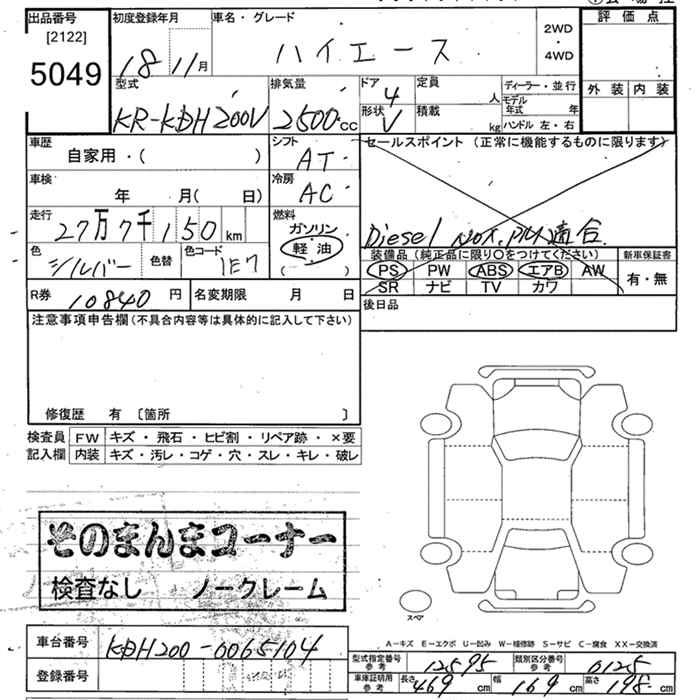 出品番号 初度登録年月 車名・グレード 2WD・4WD 評価点
[2122]
5049
18年11月 ハイエース
外装 内装
型式 排気量 ドア 定員 ディーラー・並行
4 人 モデル年式 年
KR-KDH200V 2500cc 形状 V 積載 kg ハンドル 左・右
車歴 シフト セールスポイント (正常に機能するものに限ります)
自家用・( ) AT
車検 冷房
年 月(日) AC
走行 燃料
27万7千150km ガソリン Diesel NOx.PM適合
色 色替 色コード 軽油 装備品 (純正品に限り○をつけてください) 新車保証書
シルバー 1E7 ( ) PS PW ABS エアB AW 有・無
SR ナビ TV カワ
R券 10840円 名変期限 月 日 後日品
注意事項申告欄(不具合内容等は具体的に記入して下さい)
修復歴 有 [箇所 ]
検査員 FW キズ・飛石・ヒビ割・リペア跡・×要
記入欄 内装 キズ・汚レ・コゲ・穴・スレ・キレ・破レ
そのまんまコーナー
検査なし ノークレーム
スペア
A-キズ E-エクボ U-凹み W-補修跡 S-サビ C-腐食 XX-交換済
車台番号 KDH200-0065104
型式指定番号 参考 12595 類別区分番号 参考 0125
登録番号
車庫証明用 参考 長さ 469cm 幅 169cm 高さ 198cm